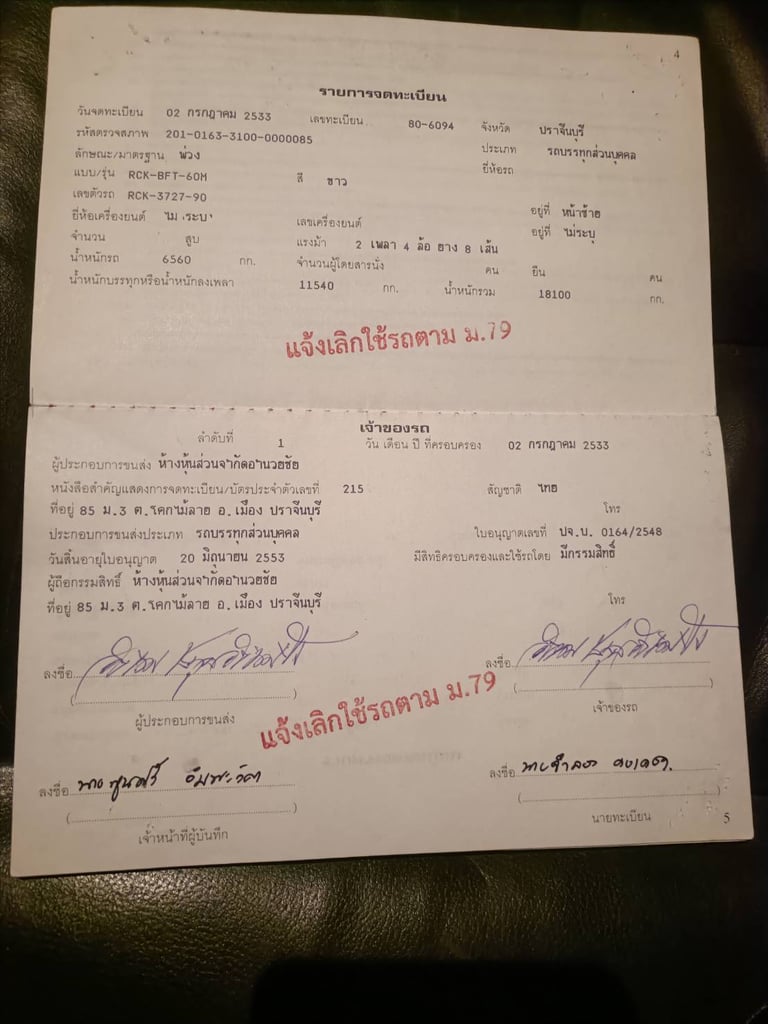 4
รายการจดทะเบียน
วันจดทะเบียน 02 กรกฎาคม 2533 เลขทะเบียน 80-6094 จังหวัด ปราจีนบุรี
รหัสตรวจสภาพ 201-0163-3100-0000085 ประเภท รถบรรทุกส่วนบุคคล
ลักษณะ/มาตรฐาน พ่วง ยี่ห้อรถ
แบบ/รุ่น RCK-BFT-60M สี ขาว
เลขตัวรถ RCK-3727-90 อยู่ที่ หน้าซ้าย
ยี่ห้อเครื่องยนต์ ไม่ระบุ เลขเครื่องยนต์ อยู่ที่ ไม่ระบุ
จำนวน สูบ แรงม้า 2 เพลา 4 ล้อ ยาง 8 เส้น
น้ำหนักรถ 6560 กก. จำนวนผู้โดยสารนั่ง คน ยืน คน
น้ำหนักบรรทุกหรือน้ำหนักลงเพลา 11540 กก. น้ำหนักรวม 18100 กก.
แจ้งเลิกใช้รถตาม ม.79
เจ้าของรถ
ลำดับที่ 1 วัน เดือน ปี ที่ครอบครอง 02 กรกฎาคม 2533
ผู้ประกอบการขนส่ง ห้างหุ้นส่วนจำกัดอำนวยชัย
หนังสือสำคัญแสดงการจดทะเบียน/บัตรประจำตัวเลขที่ 215 สัญชาติ ไทย
ที่อยู่ 85 ม.3 ต.โคกไม้ลาย อ.เมือง ปราจีนบุรี โทร
ประกอบการขนส่งประเภท รถบรรทุกส่วนบุคคล ใบอนุญาตเลขที่ ปจ.บ. 0164/2548
วันสิ้นอายุใบอนุญาต 20 มิถุนายน 2553 มีสิทธิครอบครองและใช้รถโดย มีกรรมสิทธิ์
ผู้ถือกรรมสิทธิ์ ห้างหุ้นส่วนจำกัดอำนวยชัย
ที่อยู่ 85 ม.3 ต.โคกไม้ลาย อ.เมือง ปราจีนบุรี โทร
ลงชื่อ ลงชื่อ
ผู้ประกอบการขนส่ง เจ้าของรถ
แจ้งเลิกใช้รถตาม ม.79
ลงชื่อ ลงชื่อ
เจ้าหน้าที่ผู้บันทึก นายทะเบียน
5